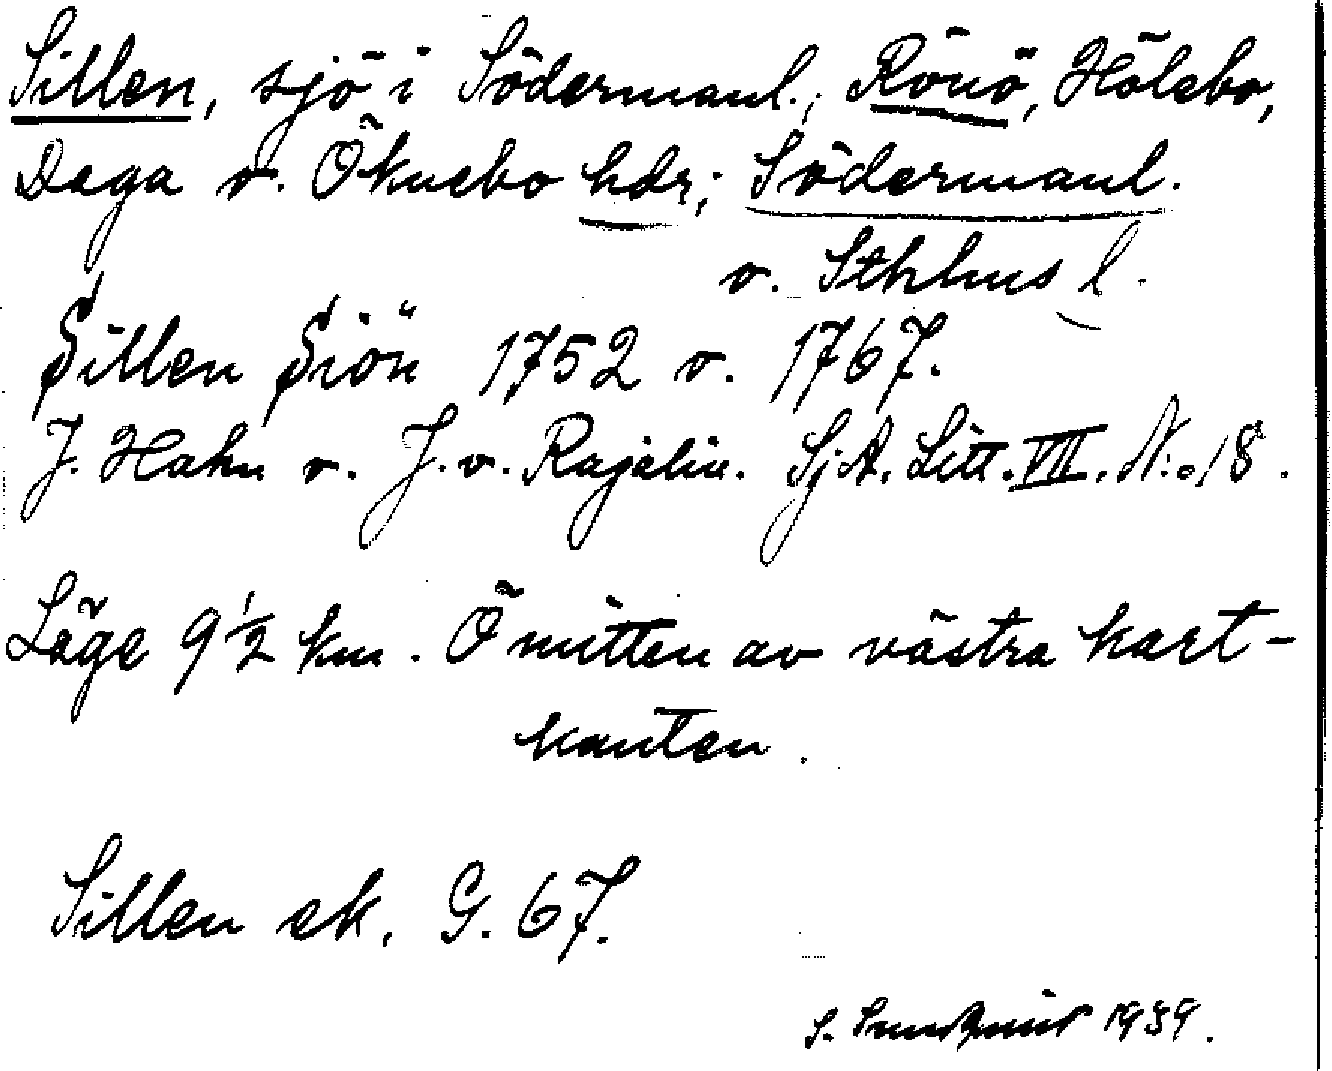 Sillen, sjö i Södermanl., Rönö, Hölebo,
Daga o. Öknebo hdr; Södermanl.
o. Sthlms l.
Sillen Siön 1752 o. 1767.
J. Hahn o. J. v. Rajalin. SjA. Litt. VII. N:o 18.
Läge 9 1/2 km. Ö mitten av västra kart-
kanten.
Sillen ek. G. 67.
S. Sundqvist 1939.